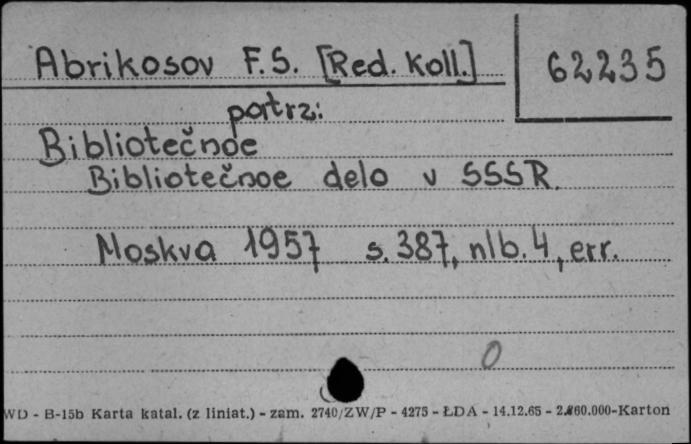 Abrikosov F.S. [Red. Koll.]
62235
patrz:
Bibliotečnoe
Bibliotečnoe delo v SSSR.
Moskva 1957 s. 387, nlb. 4, err.
0
WD - B-15b Karta katal. (z liniat.) - zam. 2740/ZW/P - 4275 - ŁDA - 14.12.65 - 2.860.000-Karton